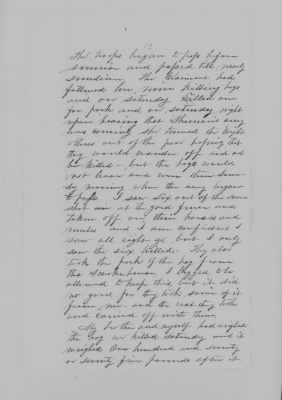 The troops began to pass before
sunrise and passed till nearly
sundown. The Claimant had
fattened ten nice killing hogs
and on Saturday killed one
for pork and on Saturday night
upon hearing that Sherman's army
was coming she turned the eight
others out of the pen hoping that
they would wander off and not
be killed - but the hogs would
not leave and were there Sun-
day morning when the army began
to pass I saw six out of the
shot down at the pen and
taken off on their horses and
mules and I am confident I
saw all eight go but I only
saw the six killed. They also
took the pork of the hog from
the smokehouse. I begged to be
allowed to keep this but it did
no good for they took some of it
from me and the rest they took
and carried off with them.
My brother and myself had weighed
the hog we killed Saturday and it
weighed One hundred and seventy
or seventy five pounds after it